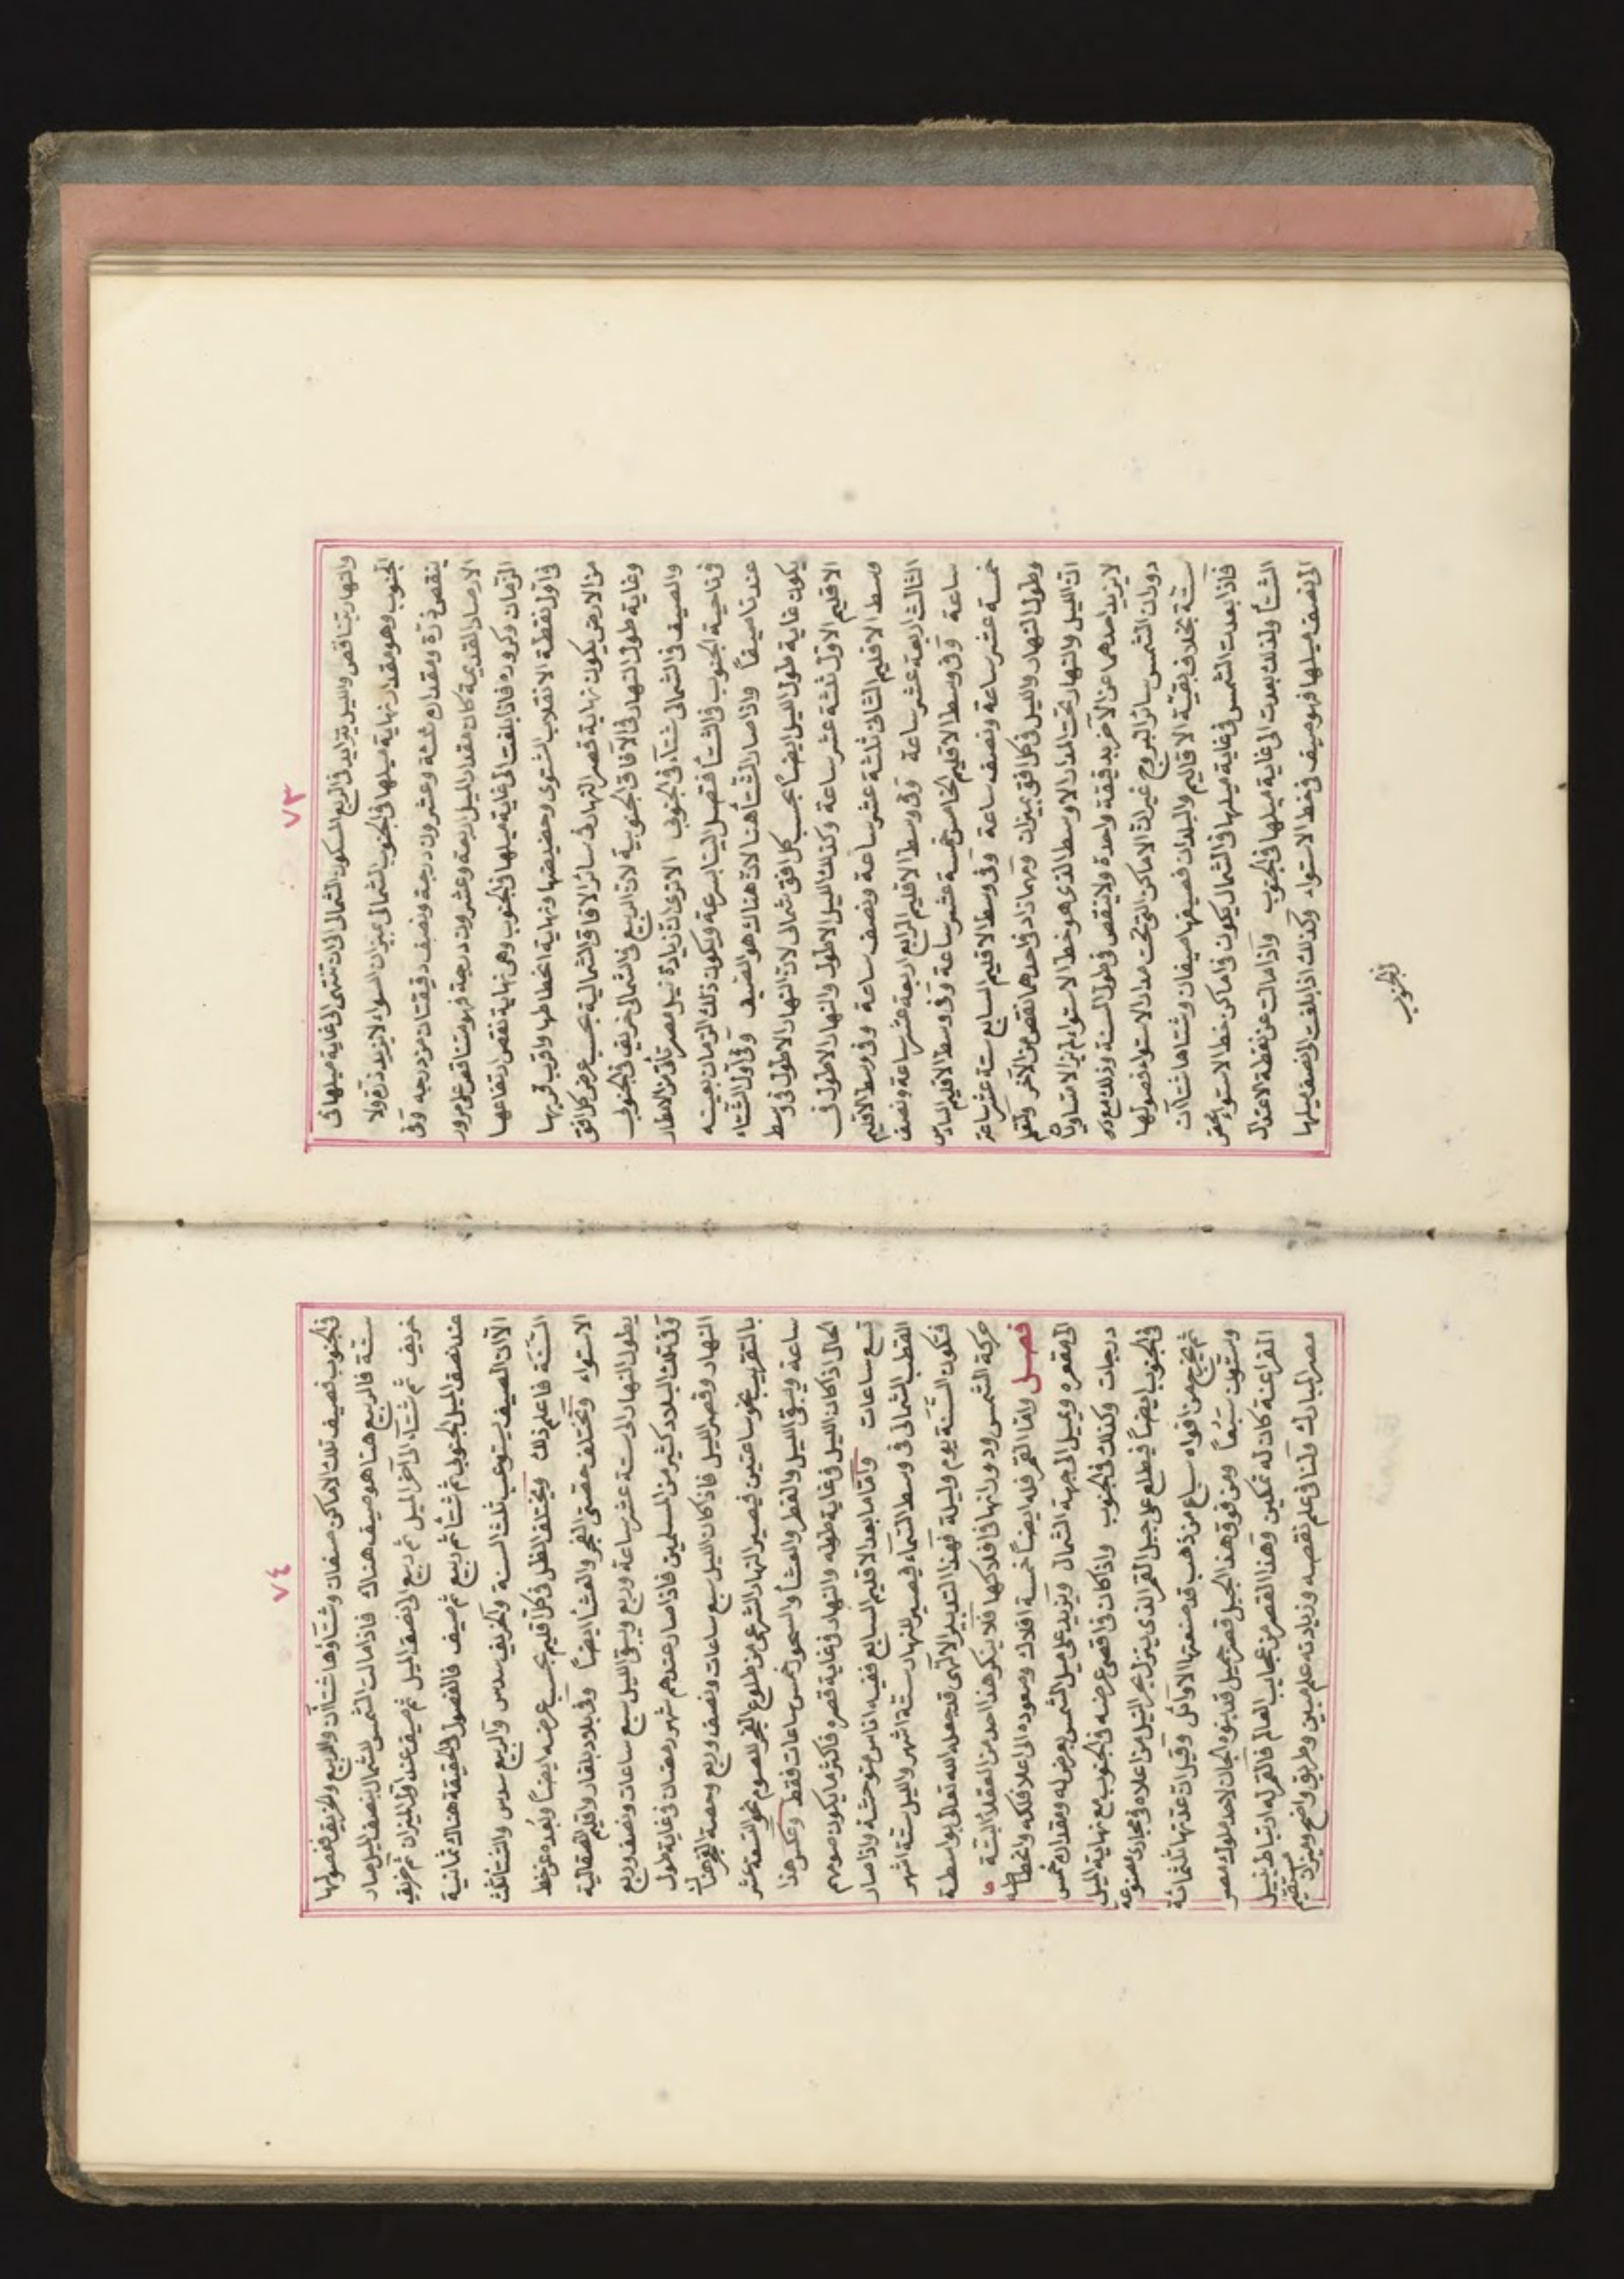 ٧٣
والنهار يتناقص والليل يتزايد في الربع المسكون الشمالي الى ان تنتهي الى غاية ميلها في
الجنوب وهو مقدار نهاية ميلها في الجنوب لشمالي بميزان السواء لا يزيد ذرة ولا
ينقص ذرة ومقداره ثلثة وعشرون درجة ونصف دقيقتان من درجه وفي
الارصاد القديمة كان مقدار الميل اربعة وعشرون درجة فهو متناقص على مرور
الزمان وكروره فاذا بلغت الى غاية ميلها في الجنوب وهي نهاية نقص ارتفاعها
في اول نقطة الانقلاب الشتوي وحضيضها ونهاية انحطاطها واقرب قربها
من الارض يكون نهاية قصر النهار في سائر الافاق الشمالية بحسب عرض كل افق
وغاية طول النهار في الآفاق الجنوبية لان الربيع في الشمالي خريف في الجنوب
والصيف في الشمالي شتاء في الجنوب الا ترى ان زيادة نيل مصر تأتي من الامطار
في ناحية الجنوب في الشتاء فتصل الينا بسرعة ويكون ذلك الزمان بعينه
عندنا صيفاً واذا صار الشتاء هنا كان هناك هو الصيف وفي اول الشتاء
يكون غاية طول الليل ايضاً بحسب كل افق شمالي لان النهار الاطول في وسط
الاقليم الاول ثلثة عشر ساعة وكذلك الليل الاطول والنهار الاطول في
وسط الاقليم الثاني ثلثة عشر ساعة ونصف ساعة وفي وسط الاقليم
الثالث اربعة عشر ساعة وفي وسط الاقليم الرابع اربعة عشر ساعة ونصف
ساعة وفي وسط الاقليم الخامس خمسة عشر ساعة وفي وسط الاقليم السادس
خمسة عشر ساعة ونصف ساعة وفي وسط الاقليم السابع ستة عشر ساعة
وطول النهار والليل في كل افق بميزان ومهما زاد في احدهما نقص من الآخر
ان الليل والنهار تحت المدار الاوسط الذي هو خط الاستواء لم يزالا متساويان
لا يزيد احدهما عن الآخر بدقيقة واحدة ولا ينقص في طول السنة وذلك مع
دوران الشمس سائر البروج غير ان الاماكن التي تحت مدار الاستواء فصولها
ستة بخلاف بقية الاقاليم والبلدان فصيفها صيفان وشتاها شتاآن
فاذا بعدت الشمس في غاية ميلها في الشمال يكون في اماكن خط الاستواء بعض
الشتاء ولذلك بعدت الى غاية ميلها في الجنوب واذا مالت عن نقطة الاعتدال
الى نصف ميلها فهو صيف في خط الاستواء وكذلك اذا بلغت الى نصف ميلها
في الجنوب
٧٤
في الجنوب فصيف تلك الاماكن صيفان وشتاؤها شتاآن والربيع والخريف ففصولها
ستة فالربيع هنا هو صيف هناك فاذا مالت الشمس للشمال بنصف الميل صار
خريف ثم شتاء الى آخر الميل ثم ربيع الى نصف الميل ثم صيف عند اول الميزان ثم خريف
عند نصف الميل الجنوبي ثم شتاء ثم ربيع ثم صيف فالفصول الحقيقة هناك ثمانية
الا ان الصيف يستوعب ثلث السنة والخريف سدس والربيع سدس والشتاء ثلث
السنة فاعلم ذلك ويختلف الظل في كل اقليم بحسب عرضه ايضاً وبُعده عن خط
الاستواء وتختلف حصتي الفجر والعشاء ايضاً وفي بلاد بلغار واقليم الصقالبة
يطول النهار الى ستة عشر ساعة وربع ويبقى الليل سبع ساعات ونصف وربع
وفي تلك البلاد كثير من المسلمين فاذا صار عندهم شهر رمضان في غاية طول
النهار وقصر الليل فاذا كان الليل سبع ساعات ونصف وربع وحصة الفجر هناك
بالتقريب نحو ساعتين فيصير النهار الشرعي من طلوع الفجر للصوم نحو التسعة عشر
ساعة ويبقى الليل والفطر والعشاء والسحور خمس ساعات فقط وعكس هذا
الحال اذا كان الليل في غاية طوله والنهار في غاية قصره فاكثر ما يكون صومهم
تسع ساعات واما ما بعد الاقليم السابع ففيه اناس متوحشة واذا صار
القطب الشمالي في وسط السماء فيصير النهار ستة اشهر والليل ستة اشهر
فتكون السنة يوم وليلة فهذا التدبير الالهي قد جعله الله تعالى بواسطة
حركة الشمس ودورانها في افلاكها فلا ينكر هذا احد من العقلاء البتة
فصل واما القمر فله ايضاً خمسة افلاك وصعوده الى اعلا فلكه وانحطاطه
الى مقعره ويميل الى جهة الشمال ويزيد على ميل الشمس بعرض له ومقداره خمس
درجات وكذلك في الجنوب واذا كان في اقصى عرضه في الجنوب مع نهاية الميل
في الجنوب ايضاً فيطلع على جبل القمر الذي ينزل بحر النيل من اعلاه في مجاري مصنوعة
ثم يخرج من افواه سباع من ذهب قد صنعتها الاوائل وقيل ان عدتها ثلثمائة
وستون سَبُعاً ومن فوق هذا الجبل قصر جميل قد بنوه الجان لاحد ملوك مصر
الفراعنة كان له تمكين وهذا القصر من عجايب العالم فالقمر له ارتباط بنيل
مصر المبارك ولنا في علم نقصه وزيادته علم مبين وطريق واضح وميزان مستقيم